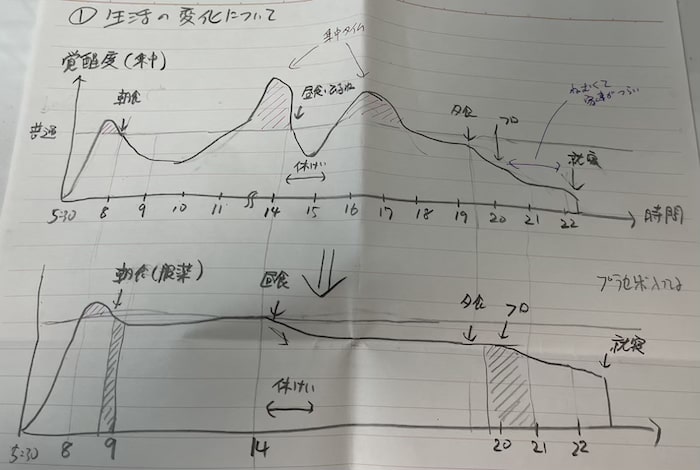 ① 生活の変化について
集中タイム
覚醒度(集中)
朝食
昼食・
普通
夕食
フロ
ねむくて
就寝
休けい
5:30 8 9 10 11 14 15 16 17 18 19 20 21 22 時間
朝食(服薬)
昼食
プラセボ入ってる
夕食
フロ
就寝
休けい
5:30 8 9 14 20 21 22